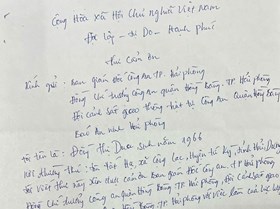 Cộng Hòa Xã Hội Chủ Nghĩa Việt Nam
Độc Lập - Tự Do - Hạnh Phúc
Thư Cảm Ơn
Kính gửi: Ban giám đốc Công An TP. Hải phòng
Đồng chí trưởng Công An quận Hồng Bàng. TP. Hải phòng
Đội cảnh sát giao thông - trật tự Công An Quận Hồng Bàng
Báo An ninh Hải Phòng
Tôi tên là: Đồng Thị Dừa Sinh năm 1966
Nơi thường trú: xã Cộng Lạc, Huyện Tứ Kỳ, tỉnh Hải Dương
Tôi viết thư này xin được cảm ơn ban giám đốc Công an TP Hải phòng
Đồng chí trưởng Công an quận Hồng Bàng TP. Hải phòng, đội cảnh sát giao
Hồng Bàng, TP. Hải phòng về việc làm